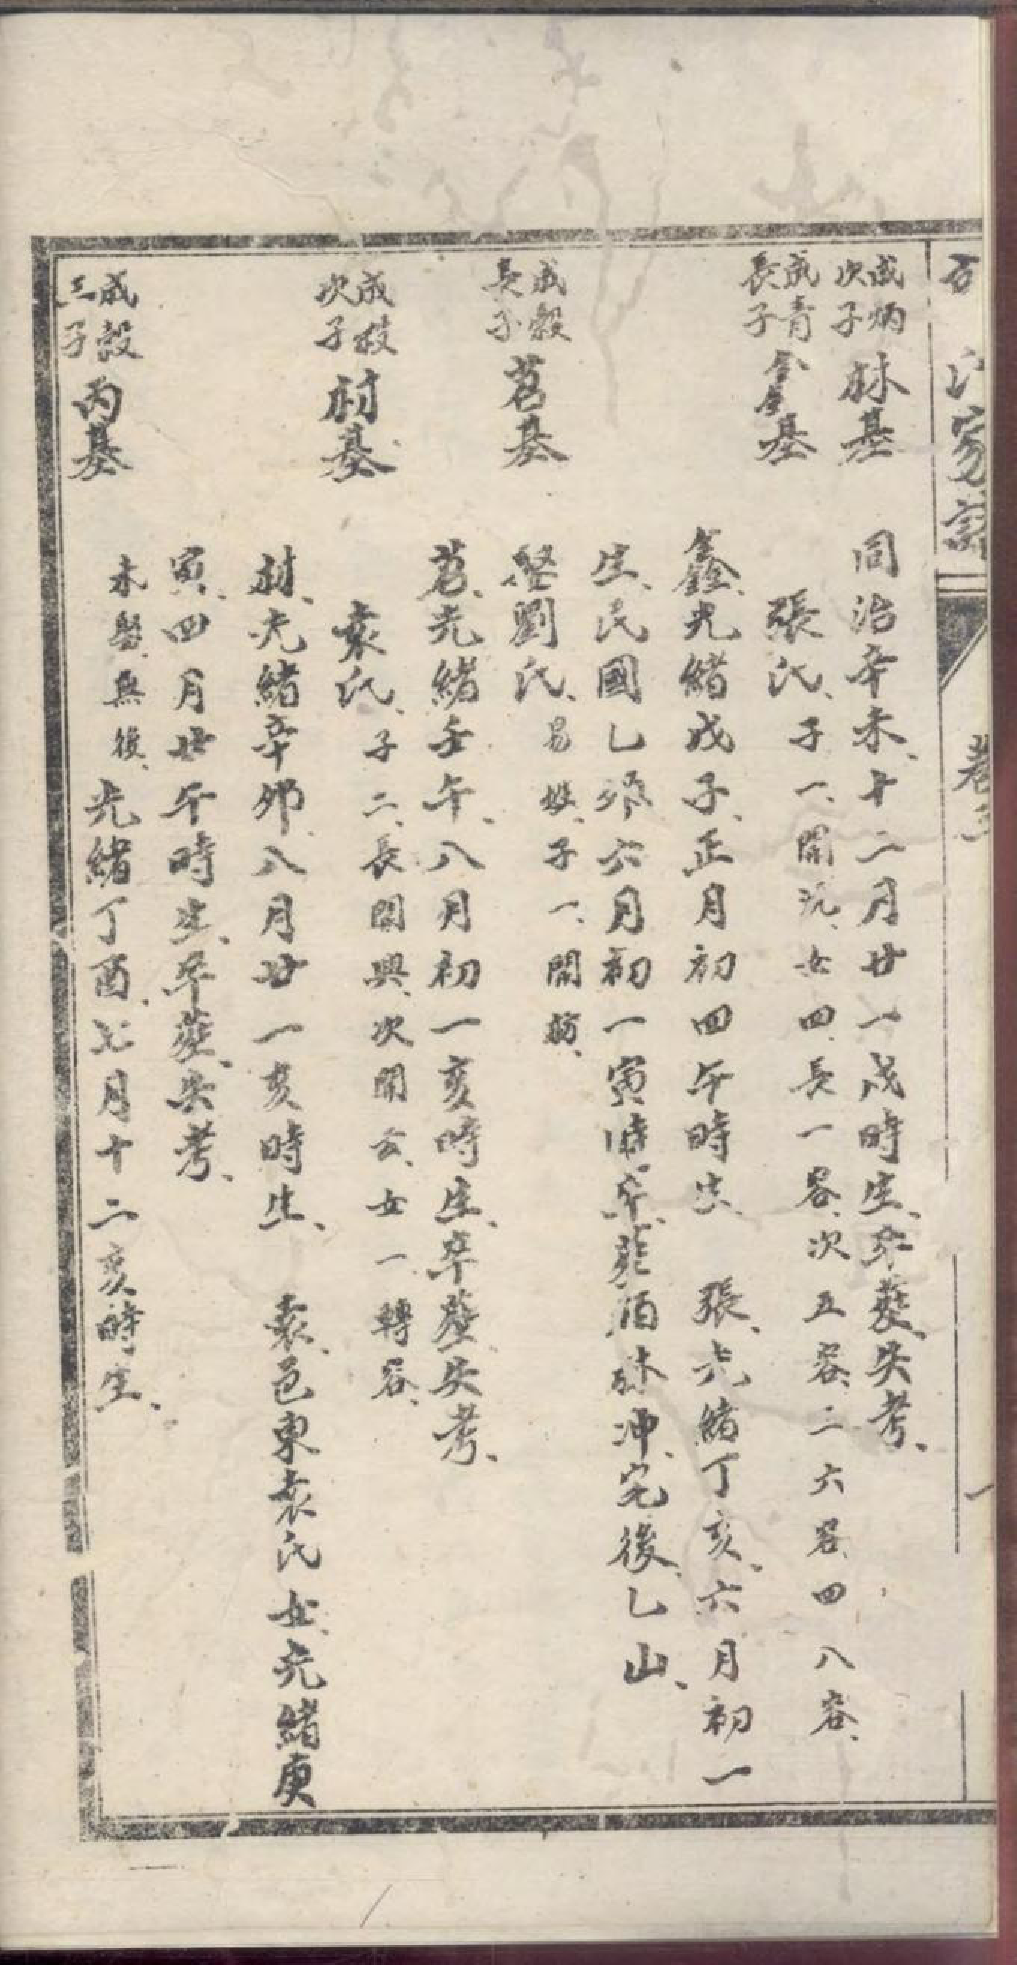 家譜
卷三
成炳次子
林基
同治辛未、十二月廿一戌時生、卒葬、失考、
成青長子
鑫基
張氏、子一、開沅、女四、長一容、次五容、二六容、四八容、
鑫、光緒戊子、正月初四午時生 張、光緒丁亥、六月初一
生、民國乙卯六月初一寅時卒、葬 冲、宅後乙山、
成穀長子
茗基
劉氏、易姓、子一、開
茗、光緒壬午、八月初一亥時生、卒葬、失考、
成穀次子
材基
袁氏、子二、長開興、次開云、女一、轉容、
材、光緒辛卯、八月廿一亥時生、 袁、邑東袁氏女、光緒庚
寅、四月廿午時生、卒葬、失考、
成穀三子
丙基
未娶、無後、光緒丁酉、七月十二亥時生、